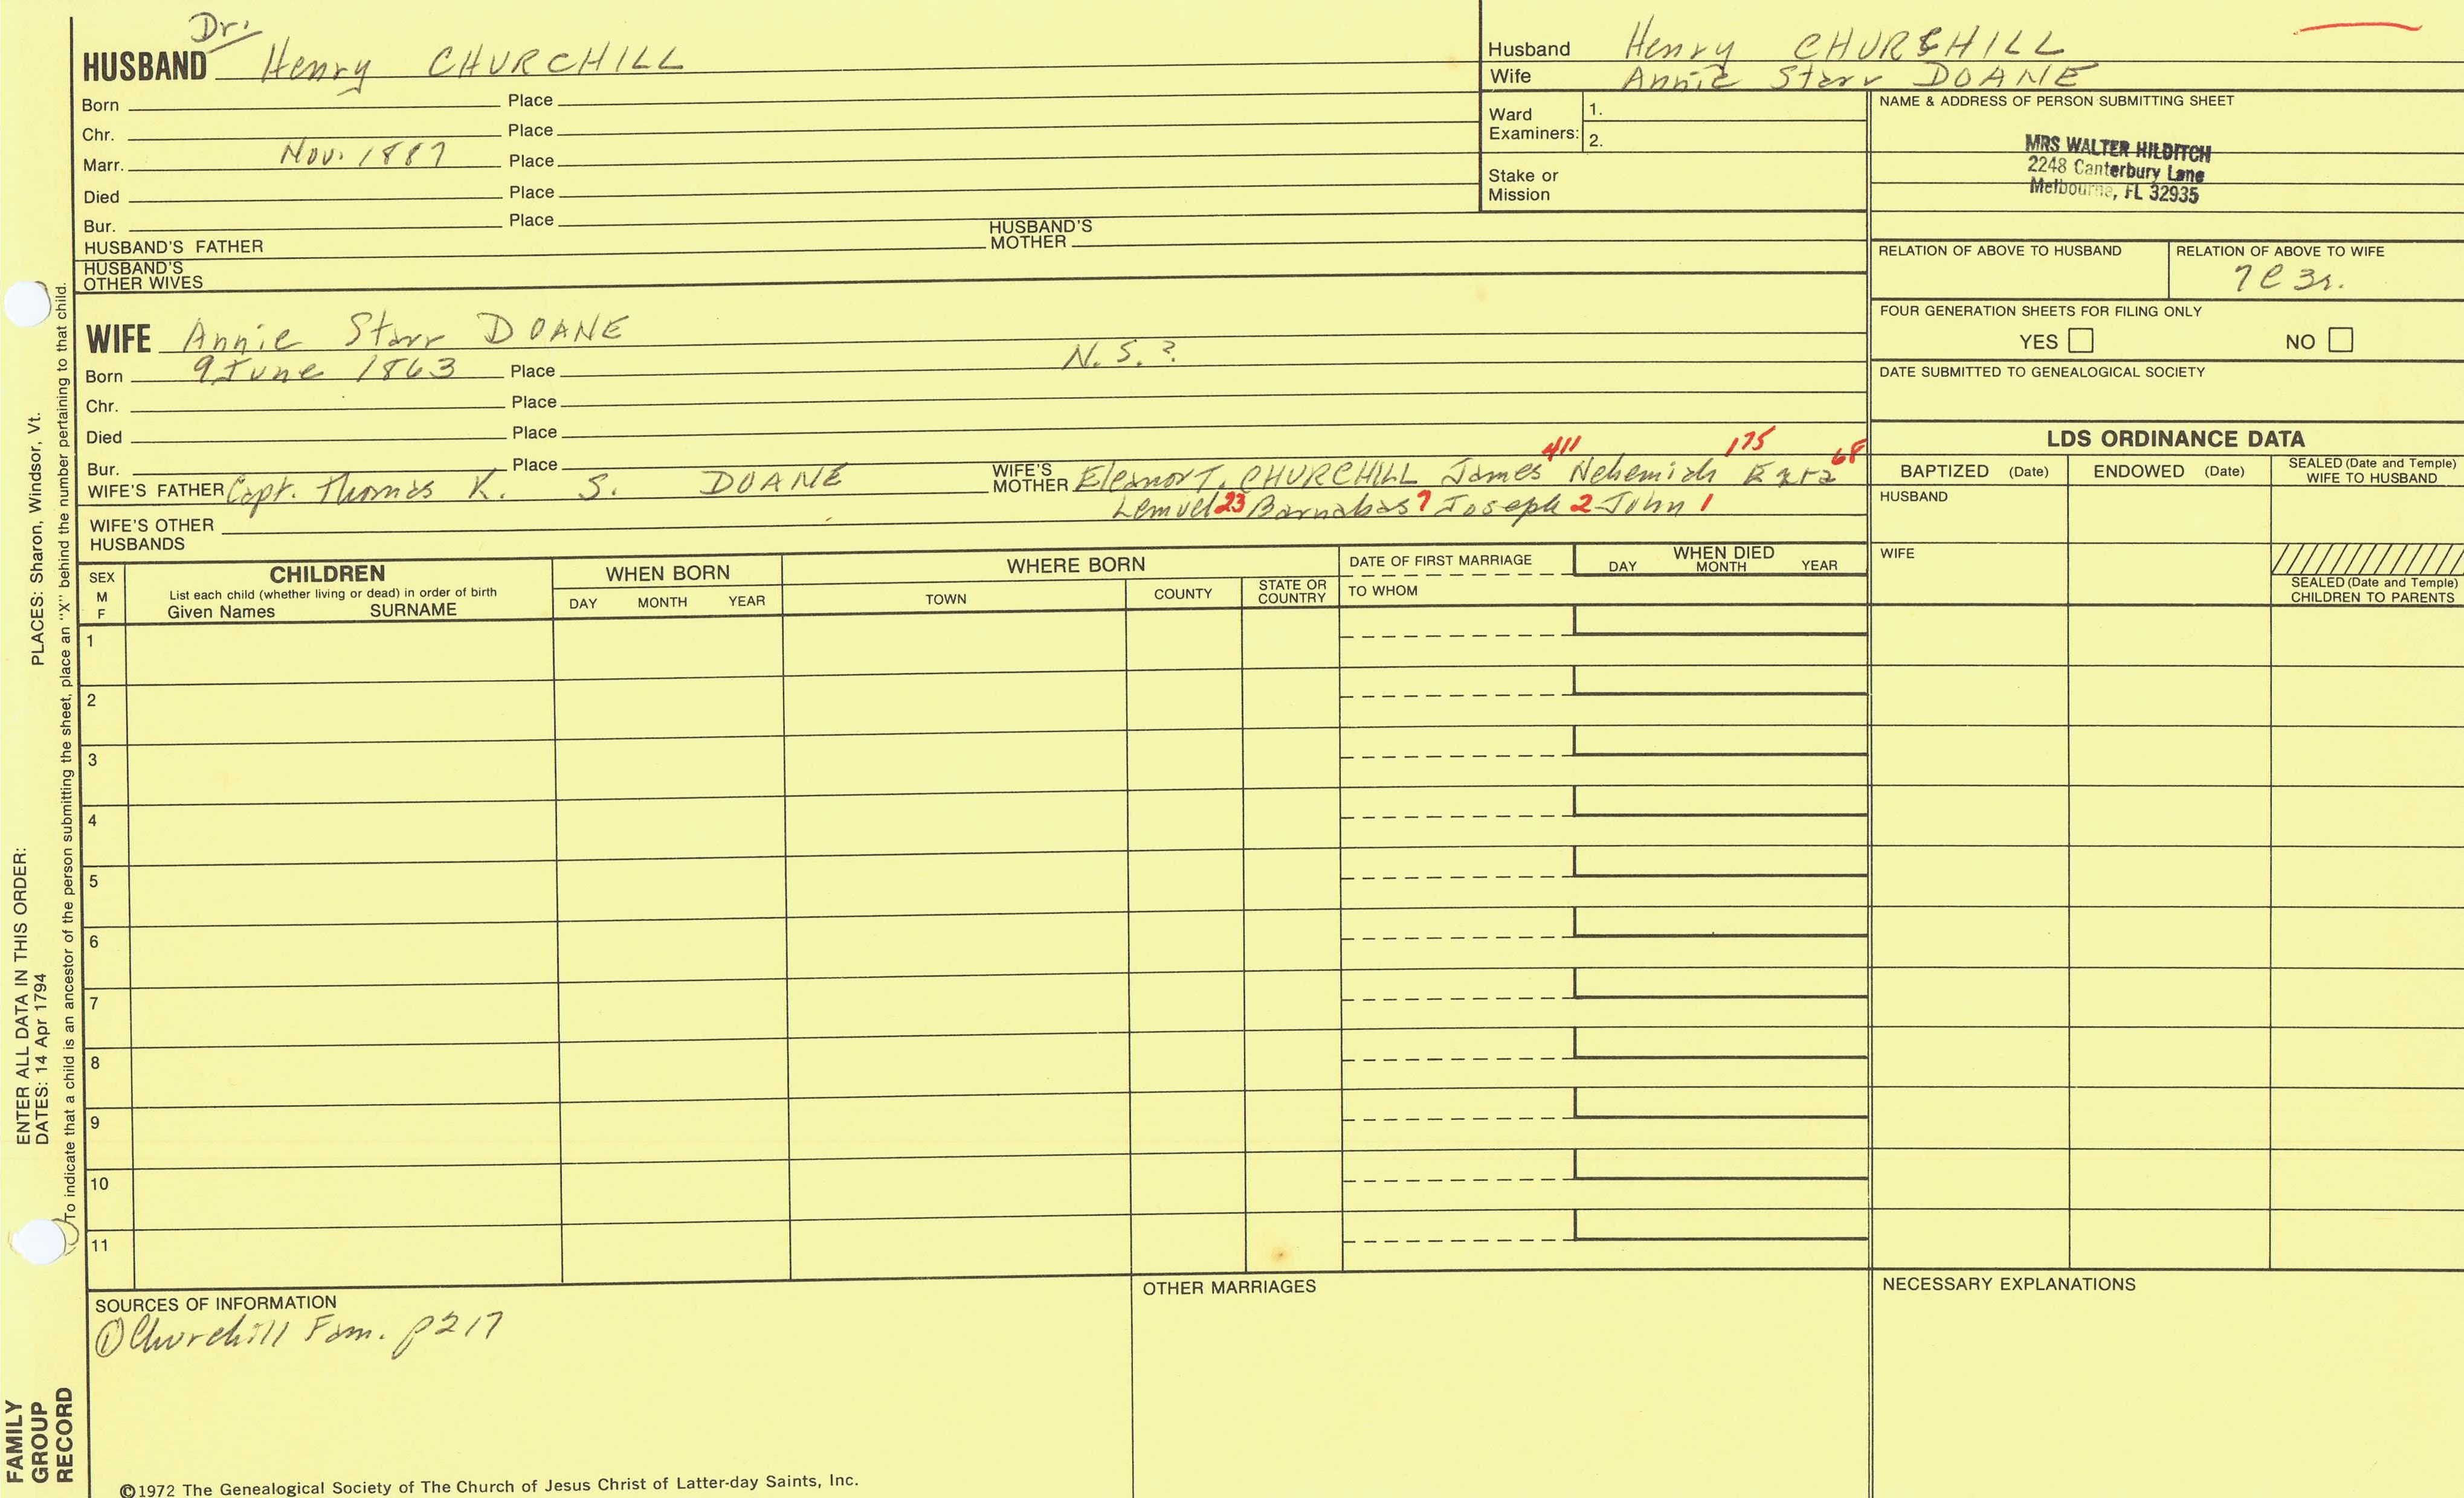 Dr.
HUSBAND Henry CHURCHILL
Born Place
Chr. Place
Marr. Nov. 1887 Place
Died Place
Bur. Place
HUSBAND'S FATHER HUSBAND'S MOTHER
HUSBAND'S OTHER WIVES
Husband Henry CHURCHILL
Wife Annie Starr DOANE
Ward Examiners: 1.
2.
Stake or Mission
NAME & ADDRESS OF PERSON SUBMITTING SHEET
MRS WALTER HILDITCH
2248 Canterbury Lane
Melbourne, FL 32935
RELATION OF ABOVE TO HUSBAND RELATION OF ABOVE TO WIFE
7C 3r.
FOUR GENERATION SHEETS FOR FILING ONLY
YES NO
DATE SUBMITTED TO GENEALOGICAL SOCIETY
WIFE Annie Starr DOANE
Born 9 June 1863 Place N.S.?
Chr. Place
Died Place
Bur. Place
WIFE'S FATHER Capt. Thomas K. S. DOANE
WIFE'S MOTHER Eleanor T. CHURCHILL James 411 Nehemiah 175 Ezra 68
Lemuel 23 Barnabas 7 Joseph 2 John 1
WIFE'S OTHER HUSBANDS
LDS ORDINANCE DATA
BAPTIZED (Date) ENDOWED (Date) SEALED (Date and Temple) WIFE TO HUSBAND
HUSBAND
WIFE
SEALED (Date and Temple) CHILDREN TO PARENTS
SEX M F
CHILDREN
List each child (whether living or dead) in order of birth
Given Names SURNAME
WHEN BORN
DAY MONTH YEAR
WHERE BORN
TOWN COUNTY STATE OR COUNTRY
DATE OF FIRST MARRIAGE
TO WHOM
WHEN DIED
DAY MONTH YEAR
1
2
3
4
5
6
7
8
9
10
11
SOURCES OF INFORMATION
① Churchill Fam. p217
OTHER MARRIAGES
NECESSARY EXPLANATIONS
©1972 The Genealogical Society of The Church of Jesus Christ of Latter-day Saints, Inc.
FAMILY GROUP RECORD
ENTER ALL DATA IN THIS ORDER:
DATES: 14 Apr 1794
PLACES: Sharon, Windsor, Vt.
To indicate that a child is an ancestor of the person submitting the sheet, place an "X" behind the number pertaining to that child.